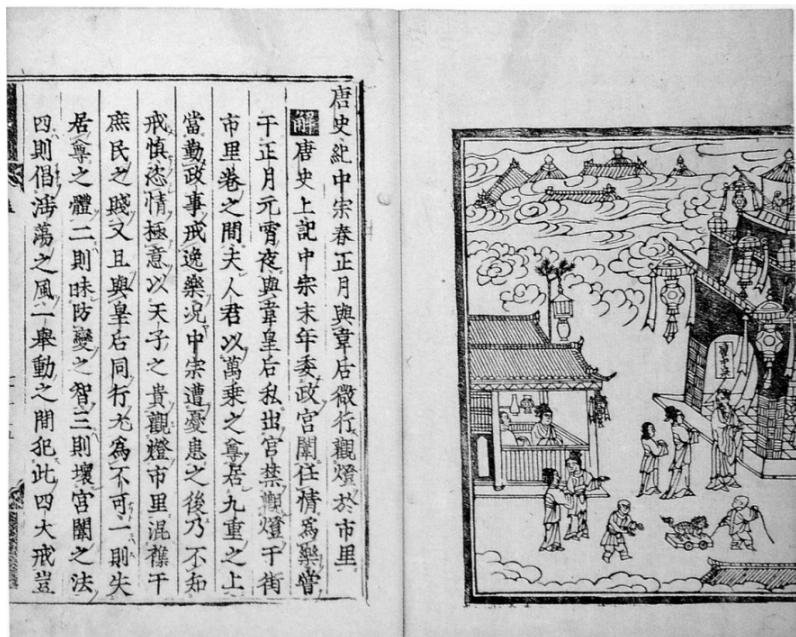 唐史紀中宗春正月與韋后微行觀燈於市里
解唐史上記中宗末年委政宮闈任情為樂嘗
于正月元宵夜與韋皇后私出宮禁觀燈于街
市里巷之間夫人君以萬乘之尊居九重之上
當勤政事戒逸樂況中宗遭憂患之後乃不知
戒慎恣情極意以天子之貴觀燈市里混襍于
庶民之賤又且與皇后同行尤為不可一則失
居尊之體二則昧防變之智三則壞宮闈之法
四則倡淫蕩之風一舉動之間犯此四大戒豈